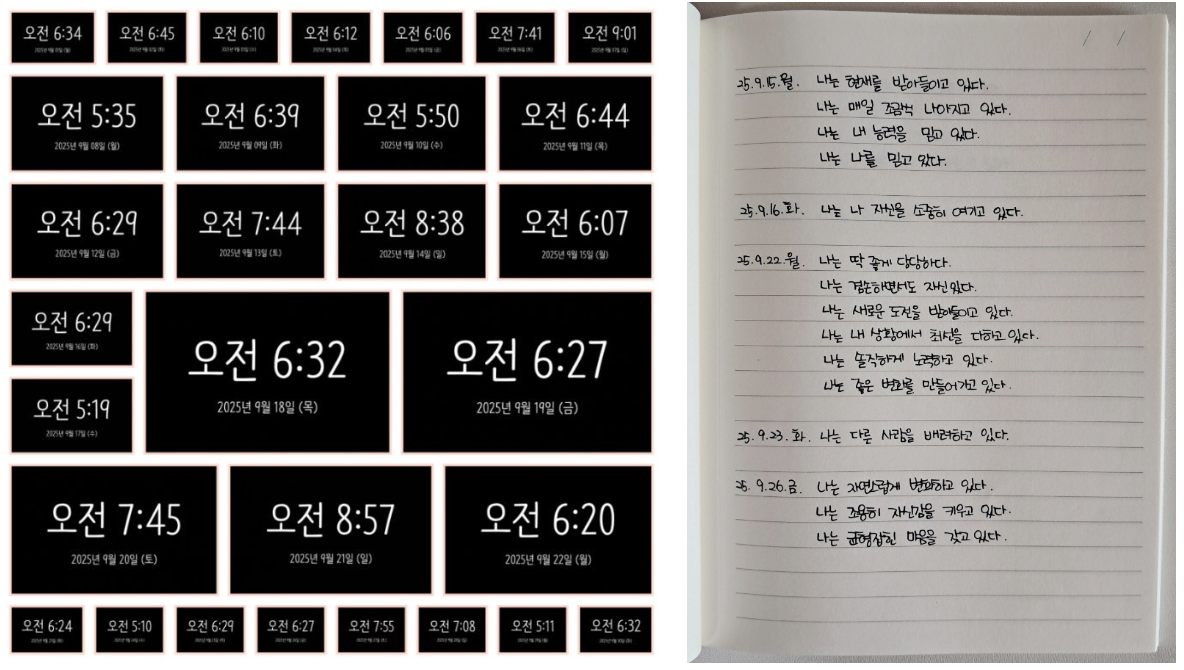 오전 6:34 오전 6:45 오전 6:10 오전 6:12 오전 6:06 오전 7:41 오전 9:01
오전 5:35 오전 6:39 오전 5:50 오전 6:44
2025년 9월 08일 (월) 2025년 9월 09일 (화) 2025년 9월 10일 (수) 2025년 9월 11일 (목)
오전 6:29 오전 7:44 오전 8:38 오전 6:07
2025년 9월 12일 (금) 2025년 9월 13일 (토) 2025년 9월 14일 (일) 2025년 9월 15일 (월)
오전 6:29
2025년 9월 16일 (화)
오전 5:19
2025년 9월 17일 (수)
오전 6:32 오전 6:27
2025년 9월 18일 (목) 2025년 9월 19일 (금)
오전 7:45 오전 8:57 오전 6:20
2025년 9월 20일 (토) 2025년 9월 21일 (일) 2025년 9월 22일 (월)
오전 6:24 오전 5:10 오전 6:29 오전 6:27 오전 7:55 오전 7:08 오전 5:11 오전 6:32
/ /
25.9.15.월. 나는 현재를 받아들이고 있다.
나는 매일 조금씩 나아지고 있다.
나는 내 능력을 믿고 있다.
나는 나를 믿고 있다.
25.9.16.화. 나는 나 자신을 소중히 여기고 있다.
25.9.22.월. 나는 딱 좋게 당당하다.
나는 겸손하면서도 자신있다.
나는 새로운 도전을 받아들이고 있다.
나는 내 상황에서 최선을 다하고 있다.
나는 솔직하게 노력하고 있다.
나는 좋은 변화를 만들어가고 있다.
25.9.23.화. 나는 다른 사람을 배려하고 있다.
25.9.26.금. 나는 자연스럽게 변화하고 있다.
나는 조용히 자신감을 키우고 있다.
나는 균형잡힌 마음을 갖고 있다.